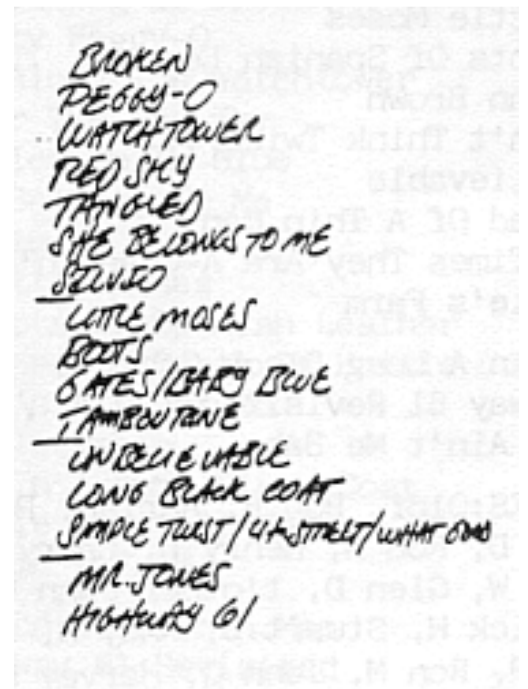 BROKEN
PEGGY-O
WATCHTOWER
RED SKY
TANGLED
SHE BELONGS TO ME
SILVIO
LITTLE MOSES
BOOTS
GATES/BABY BLUE
TAMBOURINE
UNBELIEVABLE
LONG BLACK COAT
SIMPLE TWIST/4th STREET/WHAT GOOD
MR. JONES
HIGHWAY 61